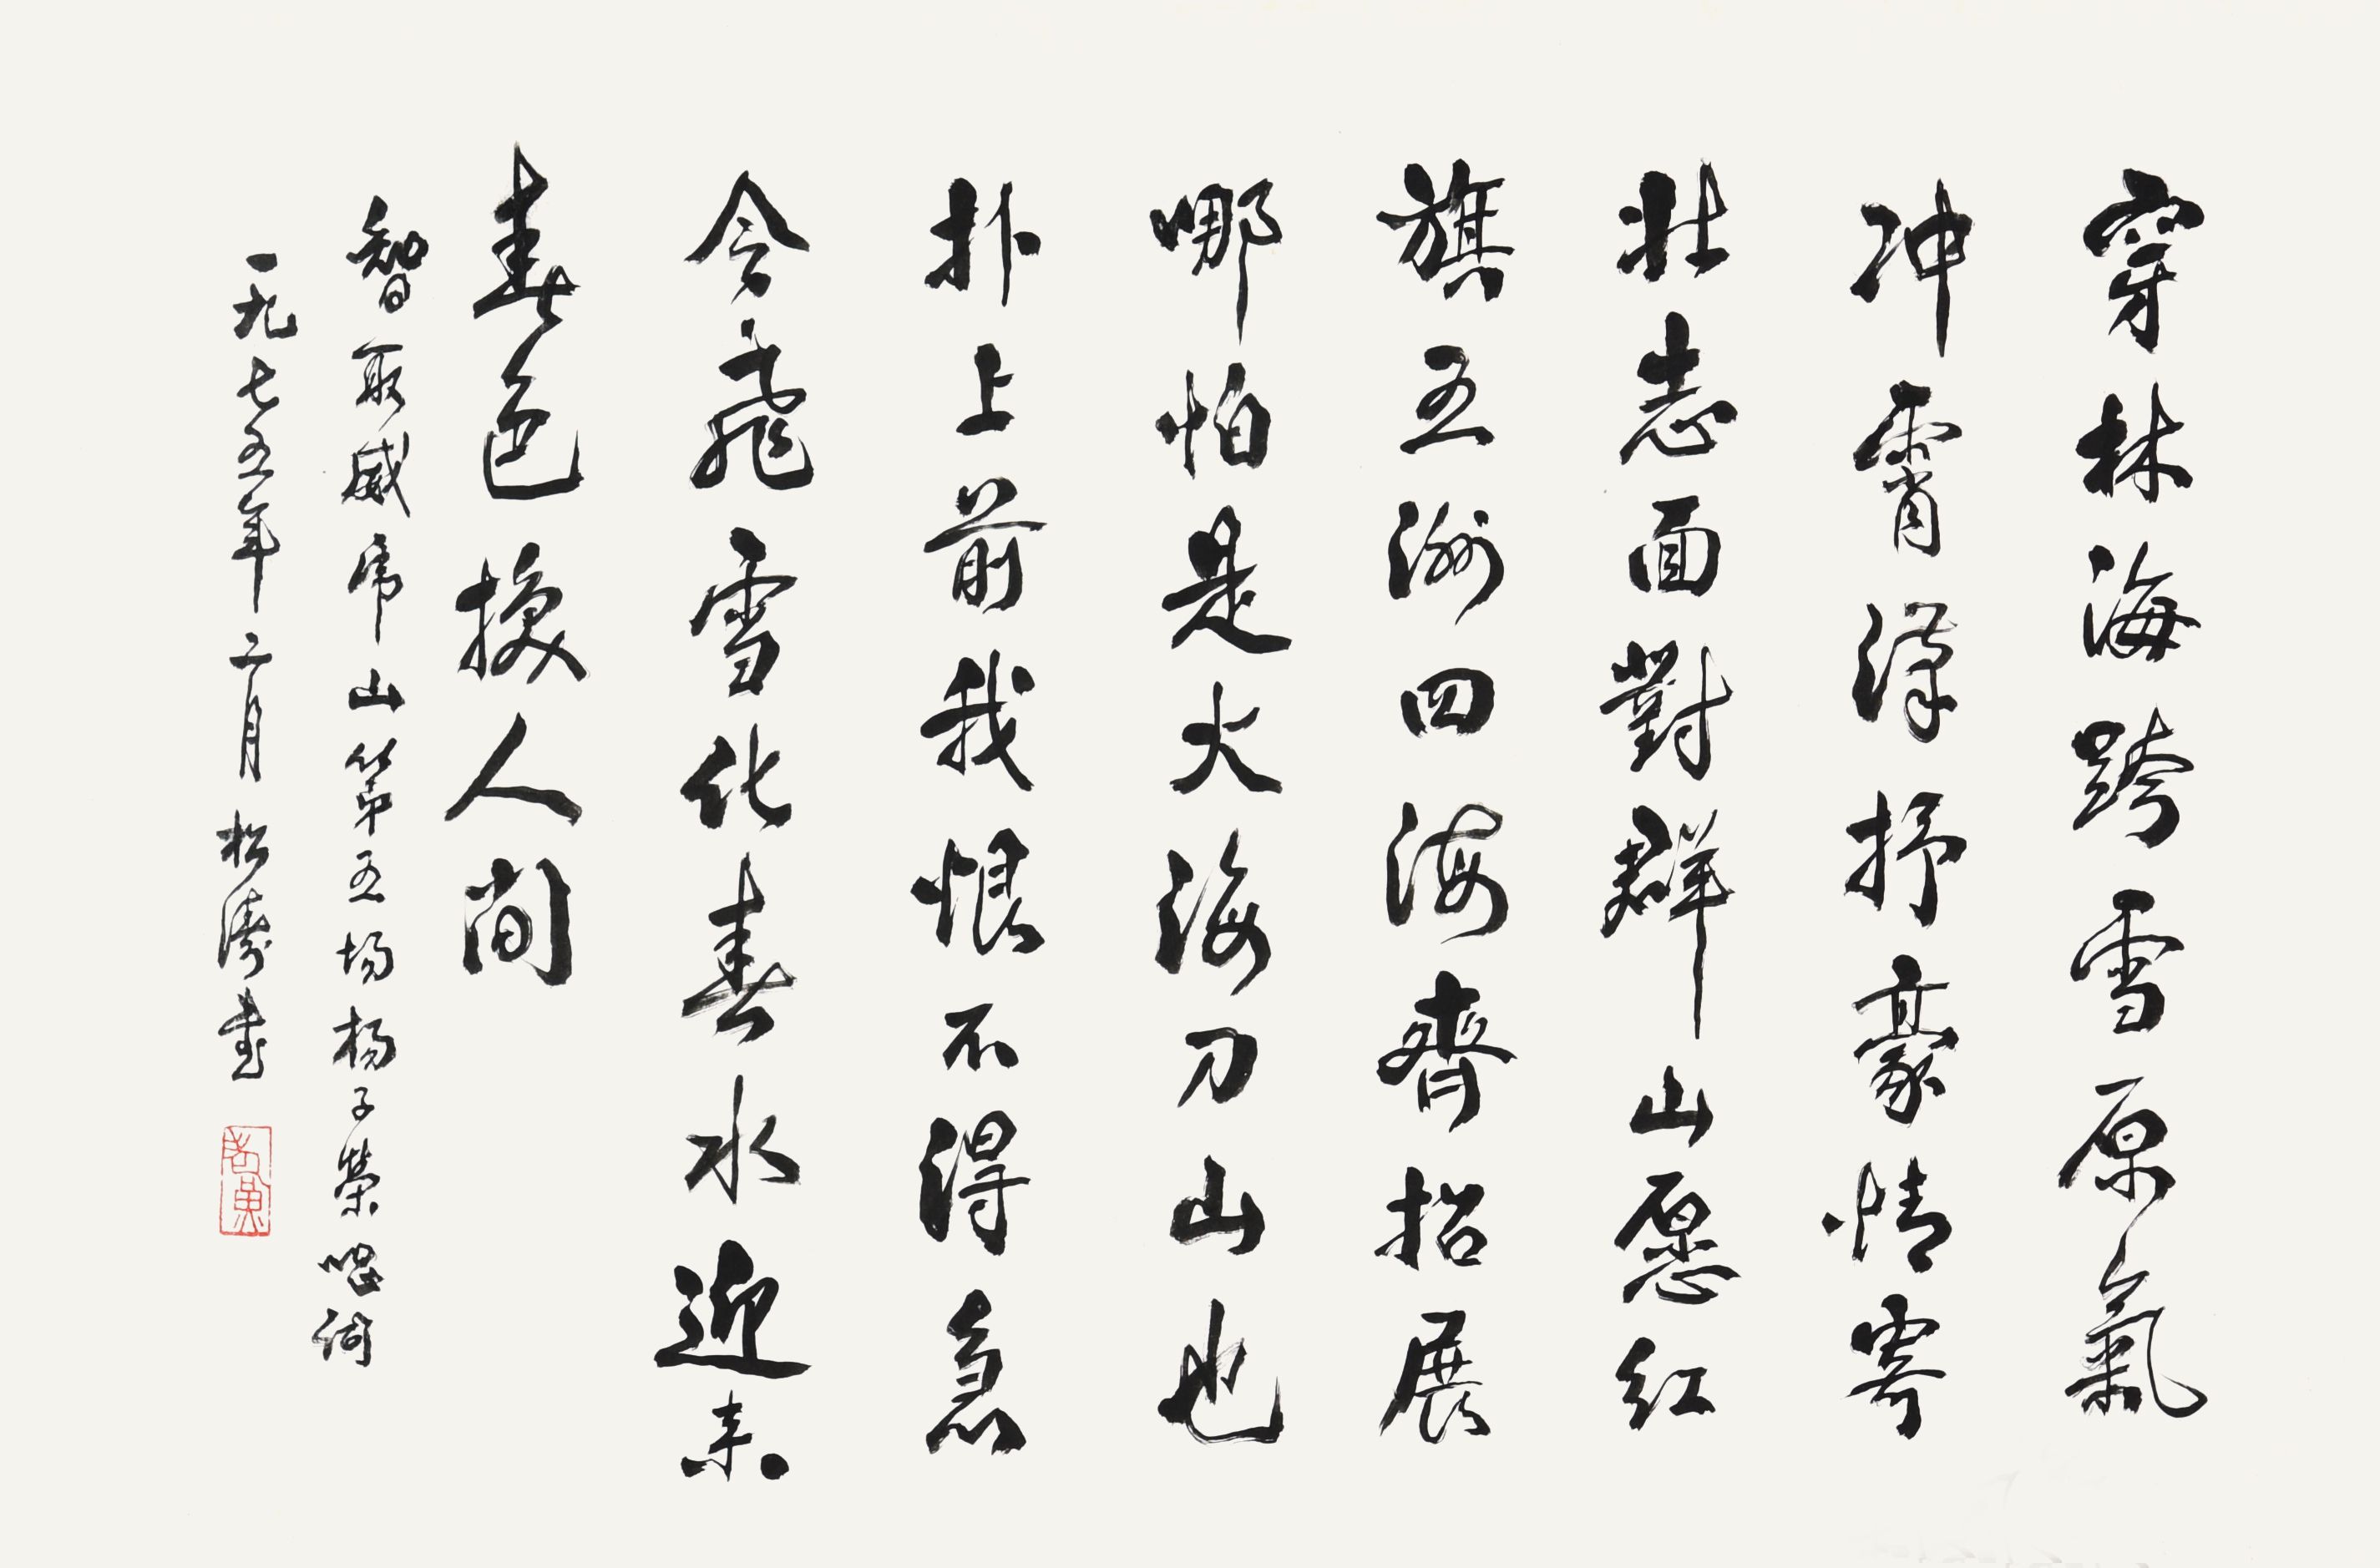 穿林海跨雪原氣
冲霄漢抒豪情寄
壮志面對群山愿红
旗五洲四海齊招展
哪怕是火海刀山也
扑上前我恨不得急
令飛雪化春水迎来
春色换人间
智取威虎山第五场杨子榮唱词
一九七五年二月 松濤書